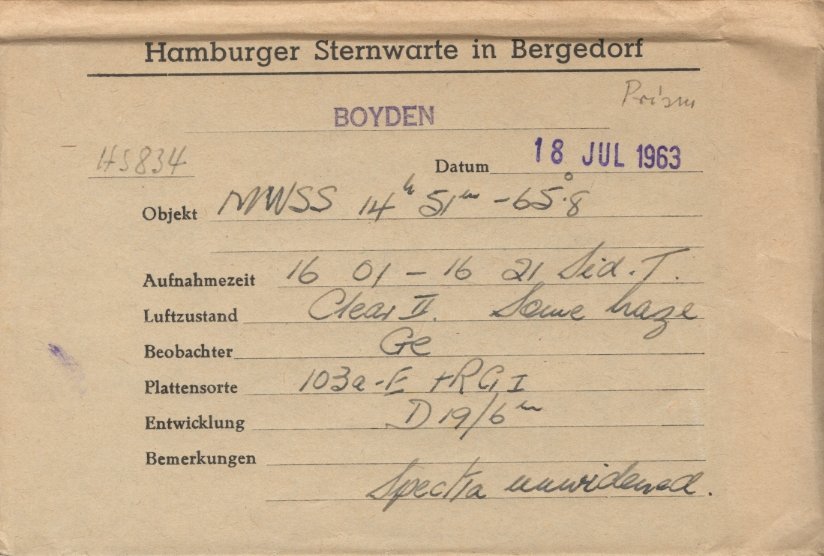 Hamburger Sternwarte in Bergedorf
Prism
BOYDEN
HS834
Datum 18 JUL 1963
Objekt MWSS 14h 51m -65°.8
Aufnahmezeit 16 01 - 16 21 Sid. T.
Luftzustand Clear II. Some haze
Beobachter Ge
Plattensorte 103a-E + RG I
Entwicklung D19/6m
Bemerkungen
Spectra unwidened.